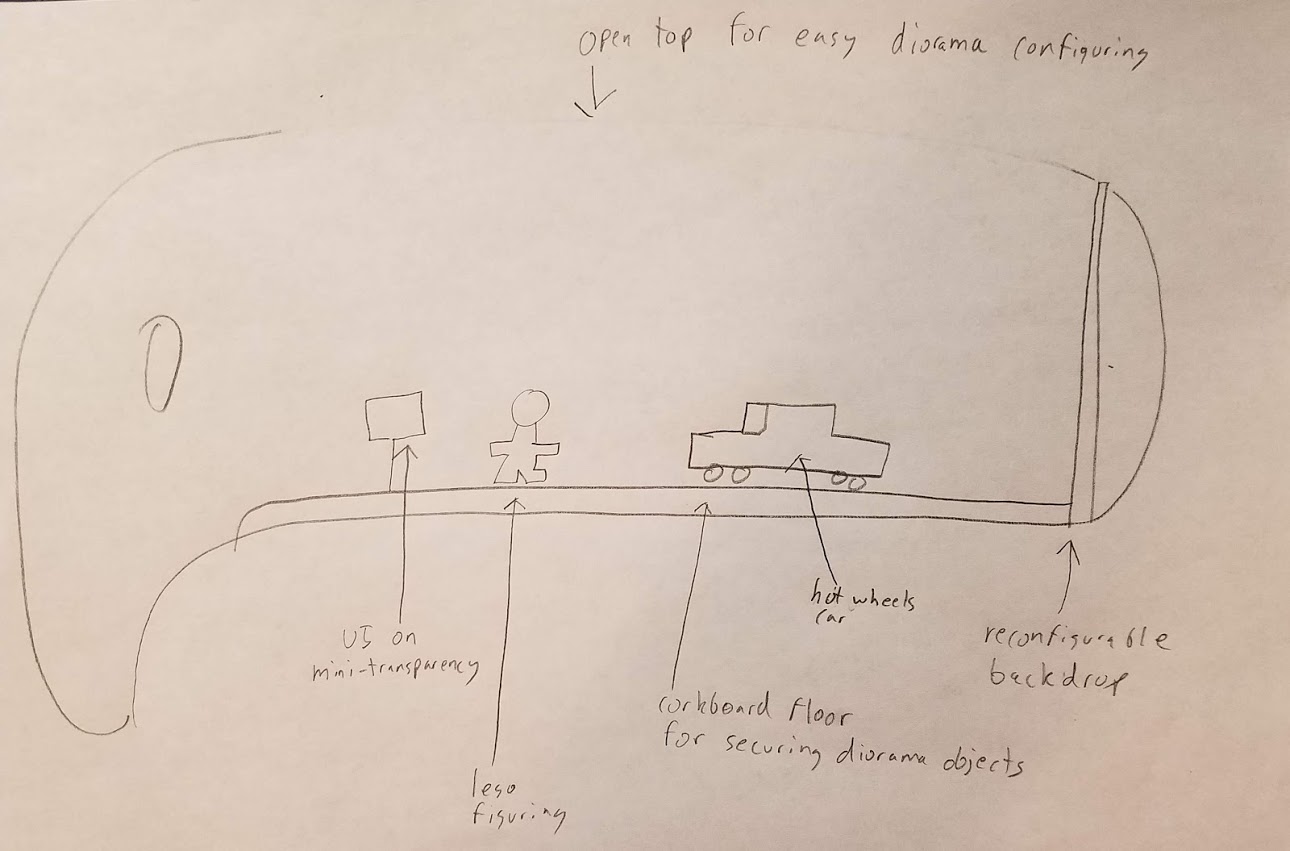 open top for easy diorama configuring
UI on
mini-transparency
lego
figuring
corkboard floor
for securing diorama objects
hot wheels
car
reconfigurable
backdrop